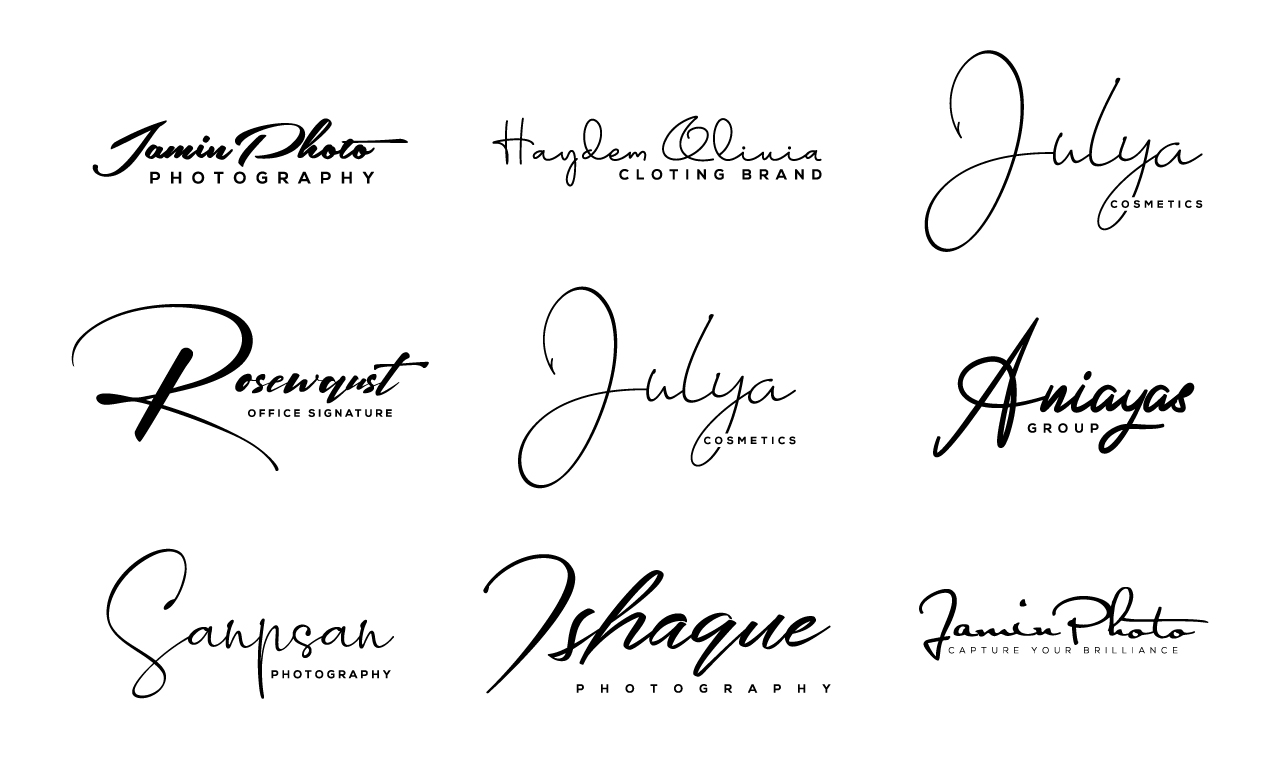 Jamin Photo
PHOTOGRAPHY
Haydem Olivia
CLOTING BRAND
Julya
COSMETICS
Rosewqust
OFFICE SIGNATURE
Julya
COSMETICS
Aniayas
GROUP
Sanpsan
PHOTOGRAPHY
Ishaque
PHOTOGRAPHY
Jamin Photo
CAPTURE YOUR BRILLIANCE